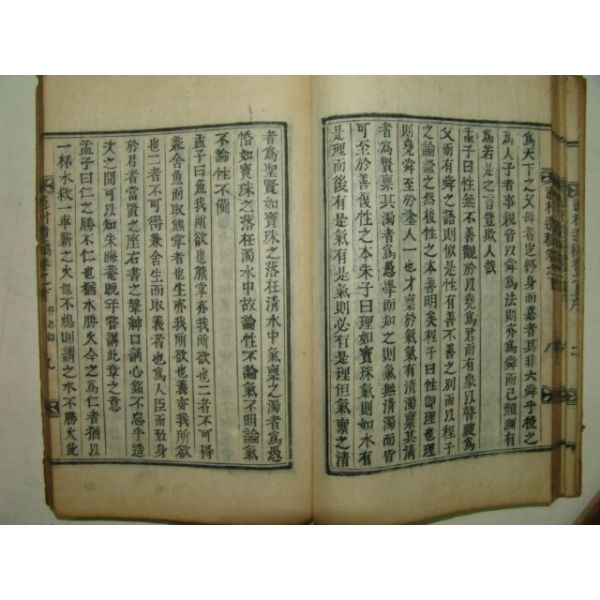 爲天下之父母者終身而慕者其非大舜乎後之
爲人子者事親皆以舜爲法則亦爲舜而已顔淵有
爲若是之言豈欺人哉
孟子曰性無不善觀於以堯爲君而有象以瞽瞍爲
父而有舜之語則似是性有不善之別而以程子
之論證之然後性之本善明矣程子曰性卽理也理
則堯舜至於途人一也才稟於氣氣有清濁稟其清
者爲賢稟其濁者爲愚學而知之則氣無清濁而皆
可至於善復性之本朱子曰理如寶珠氣則如水有
是理而後有是氣有是氣則必有是理但氣稟之清
者爲聖賢如寶珠之落在清水中氣稟之濁者爲愚
如寶珠之落在濁水中故論性不論氣不明論氣
不論性不備
孟子曰魚我所欲也熊掌亦我所欲也二者不可得
兼舍魚而取熊掌者也生亦我所欲也義亦我所欲
也二者不可得兼舍生而取義者也爲人臣而致身
於君者當置之座右書之紳口誦心不忘乎造
次之間可以知朱晦菴晚年嘗誦此章之意
孟子曰仁之勝不仁也猶水勝火今之爲仁者猶以
一杯水救一車薪之火也不熄則謂之水不勝火此
九